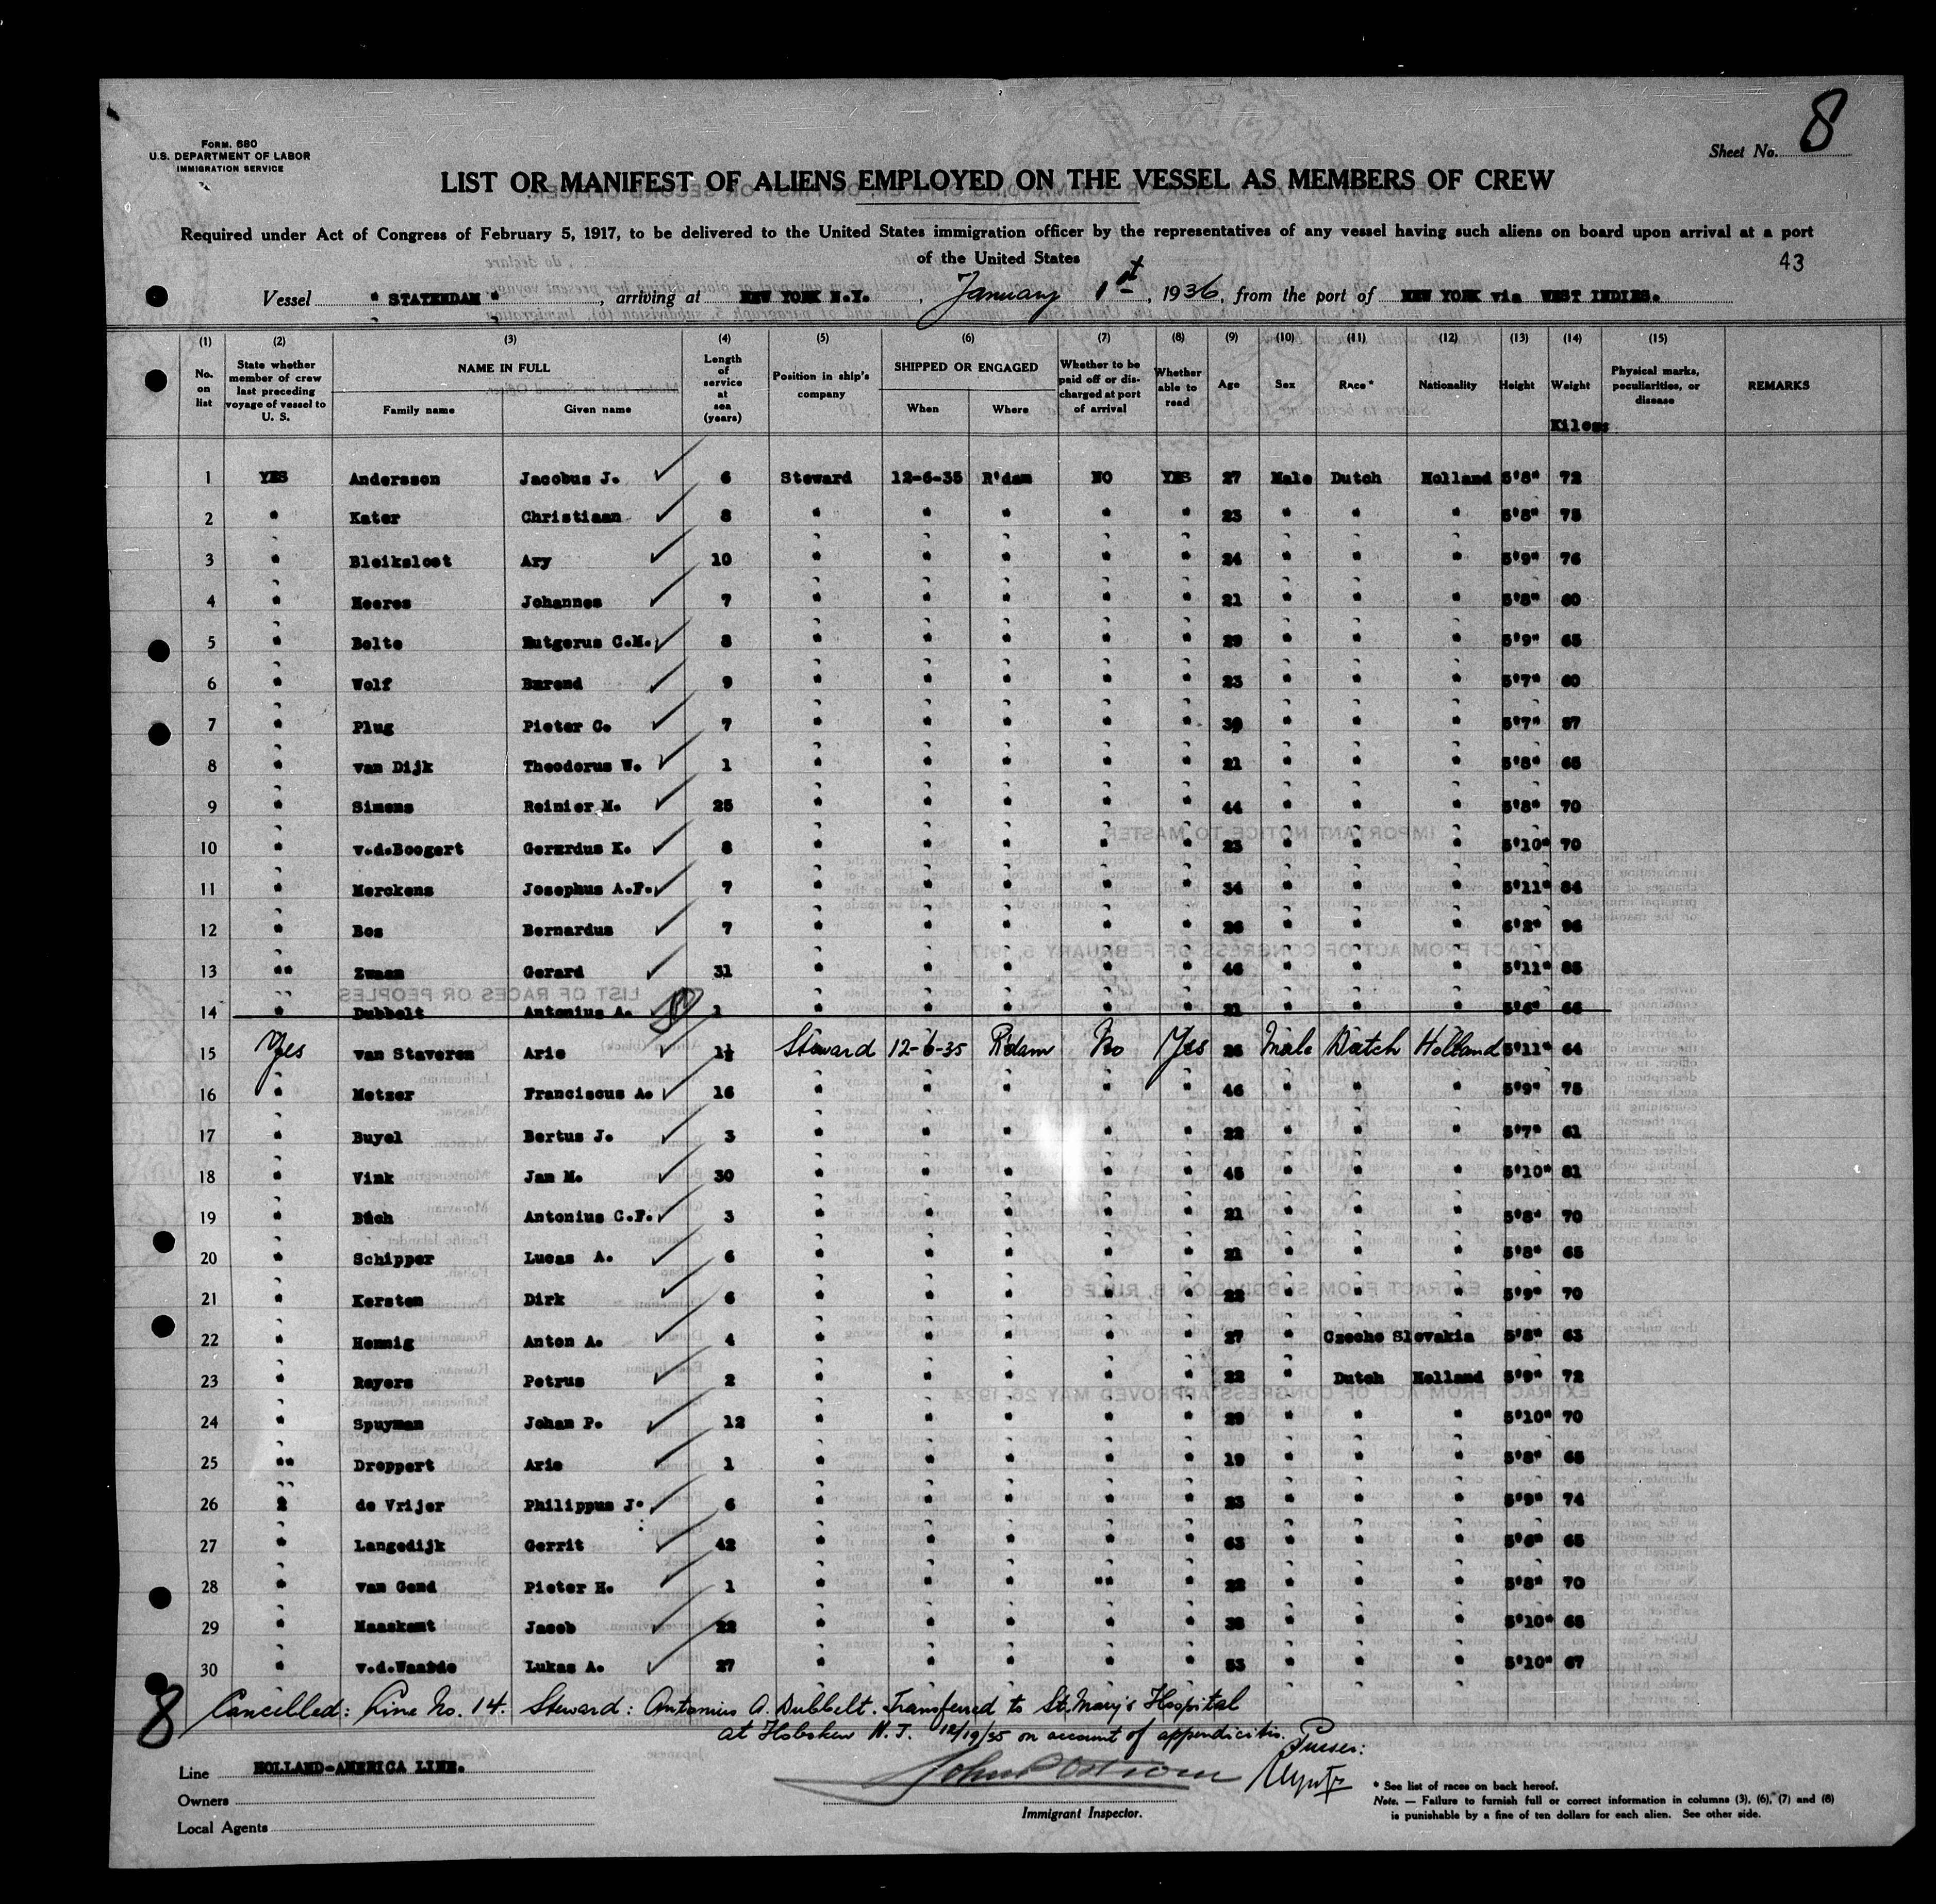 8
Form. 680
U.S. DEPARTMENT OF LABOR
IMMIGRATION SERVICE
Sheet No. 8
LIST OR MANIFEST OF ALIENS EMPLOYED ON THE VESSEL AS MEMBERS OF CREW
Required under Act of Congress of February 5, 1917, to be delivered to the United States immigration officer by the representatives of any vessel having such aliens on board upon arrival at a port
of the United States
43
Vessel " STATENDAM " , arriving at NEW YORK N.Y. , January 1st, 1936, from the port of NEW YORK via WEST INDIES.
(1) (2) (3) (4) (5) (6) (7) (8) (9) (10) (11) (12) (13) (14) (15)
No. on list State whether member of crew last preceding voyage of vessel to U. S. NAME IN FULL Family name Given name Length of service at sea (years) Position in ship's company SHIPPED OR ENGAGED When Where Whether to be paid off or discharged at port of arrival Whether able to read Age Sex Race* Nationality Height Weight Kilos Physical marks, peculiarities, or disease REMARKS
1 YES Andersson Jacobus J. 6 Steward 12-6-35 R'dam NO YES 27 Male Dutch Holland 5'8" 72
2 " Kater Christiaan 8 " " " " " 23 " " " 5'8" 75
3 " Bleiksloot Ary 10 " " " " " 24 " " " 5'9" 76
4 " Heeres Johannes 7 " " " " " 21 " " " 5'8" 60
5 " Bolte Rutgerus C.M. 8 " " " " " 29 " " " 5'9" 65
6 " Wolf Barend 9 " " " " " 23 " " " 5'7" 60
7 " Plug Pieter C. 7 " " " " " 39 " " " 5'7" 87
8 " van Dijk Theodorus W. 1 " " " " " 21 " " " 5'8" 65
9 " Simons Reinier M. 25 " " " " " 44 " " " 5'8" 70
10 " v.d.Boogert Gerardus K. 8 " " " " " 23 " " " 5'10" 70
11 " Merckens Josephus A.F. 7 " " " " " 34 " " " 5'11" 84
12 " Bos Bernardus 7 " " " " " 26 " " " 6'2" 96
13 "" Zwaan Gerard 31 " " " " " 46 " " " 5'11" 85
14 " Dubbelt Antonius A. 1 " " " " " 21 " " " 5'6" 66
15 Yes van Staveren Arie 1½ Steward 12-6-35 R'dam No Yes 26 Male Dutch Holland 5'11" 64
16 " Metzer Franciscus A. 16 " " " " " 46 " " " 5'9" 75
17 " Buyel Bertus J. 3 " " " " " 22 " " " 5'7" 61
18 " Vink Jan M. 30 " " " " " 45 " " " 5'10" 81
19 " Bach Antonius C.F. 3 " " " " " 21 " " " 5'8" 70
20 " Schipper Lucas A. 6 " " " " " 21 " " " 5'8" 65
21 " Kersten Dirk 6 " " " " " 22 " " " 5'9" 70
22 " Hennig Anton A. 4 " " " " " 27 " Czecho Slovakia 5'8" 63
23 " Reyers Petrus 2 " " " " " 22 " Dutch Holland 5'9" 72
24 " Spuyman Johan P. 12 " " " " " 29 " " " 5'10" 70
25 "" Droppert Arie 1 " " " " " 19 " " " 5'8" 65
26 2 de Vrijer Philippus J. 6 " " " " " 23 " " " 5'9" 74
27 " Langedijk Gerrit 42 " " " " " 63 " " " 5'6" 65
28 " van Gend Pieter H. 1 " " " "" " 22 " " " 5'8" 70
29 " Maaskant Jacob 22 " " " " " 38 " " " 5'10" 65
30 " v.d.Waarde Lukas A. 27 " " " " " 53 " " " 5'10" 67
8 Cancelled: Line No. 14. Steward: Antonius A. Dubbelt. Transferred to St. Mary's Hospital
at Hoboken N.J. 12/19/35 on account of appendicitis.
Purser:
Line HOLLAND-AMERICA LINE.
Owners
Local Agents
Immigrant Inspector.
* See list of races on back hereof.
Note. — Failure to furnish full or correct information in columns (3), (6), (7) and (8)
is punishable by a fine of ten dollars for each alien. See other side.